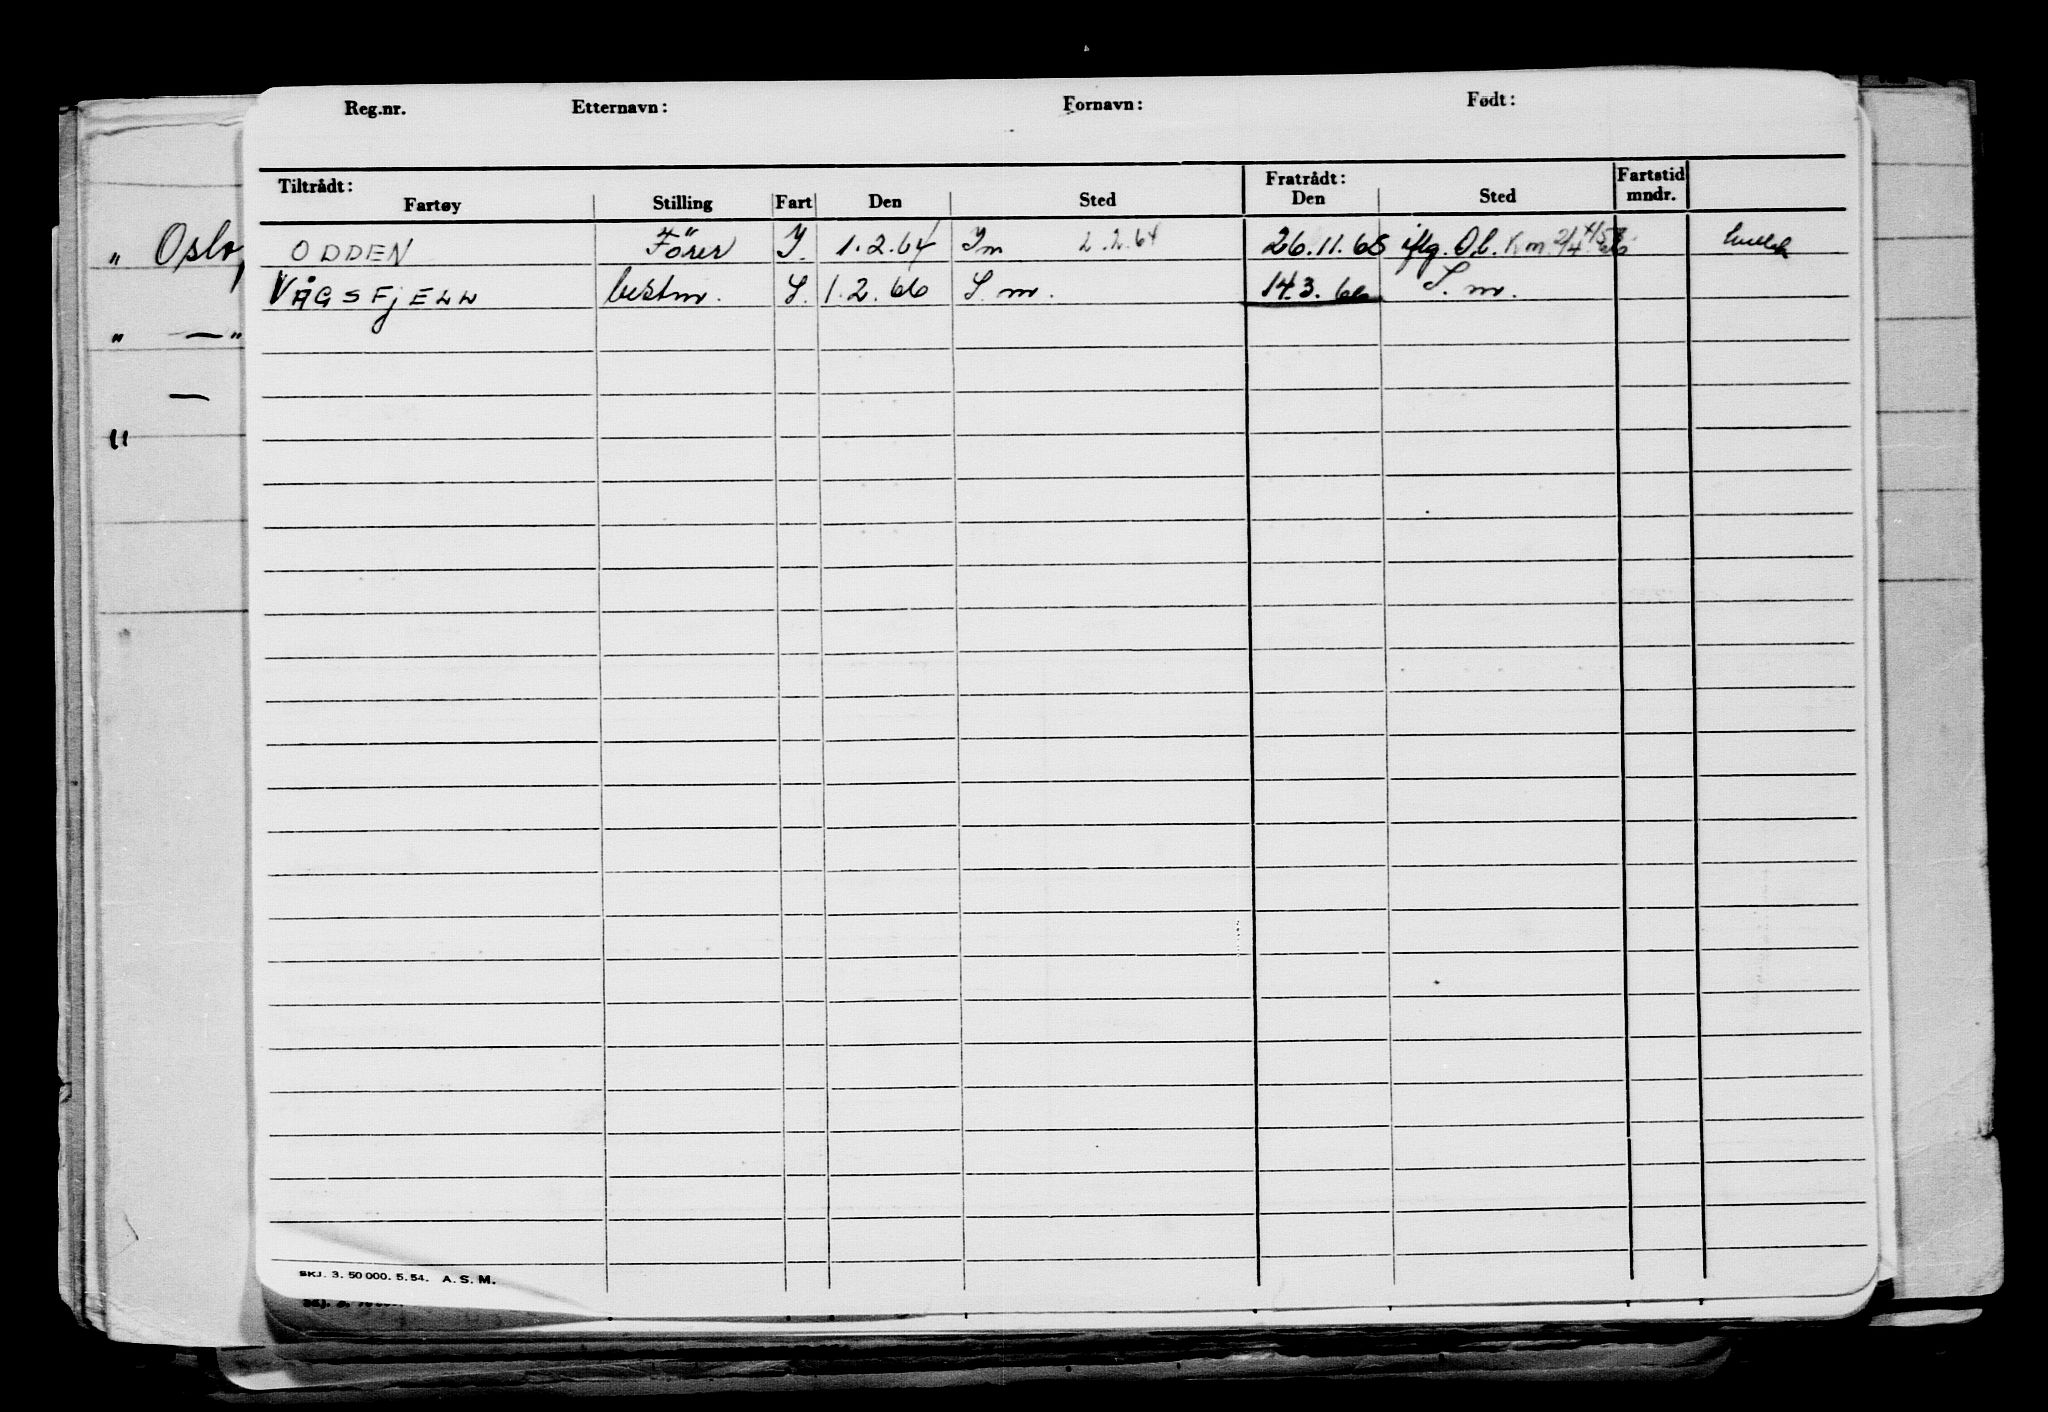 Reg.nr. Etternavn: Fornavn: Født:
Tiltrådt: Fratrådt: Fartstid
Fartøy Stilling Fart Den Sted Den Sted mndr.
" Oslo,
ODDEN Fører I. 1.2.64 Im 2.2.64 26.11.65 iflg. O.b.
VÅGSFJELL bestm. S. 1.2.66 S.m. 14.3.66 S.m.
" — "
—
"
SKJ. 3. 50 000. 5. 54. A. S. M.